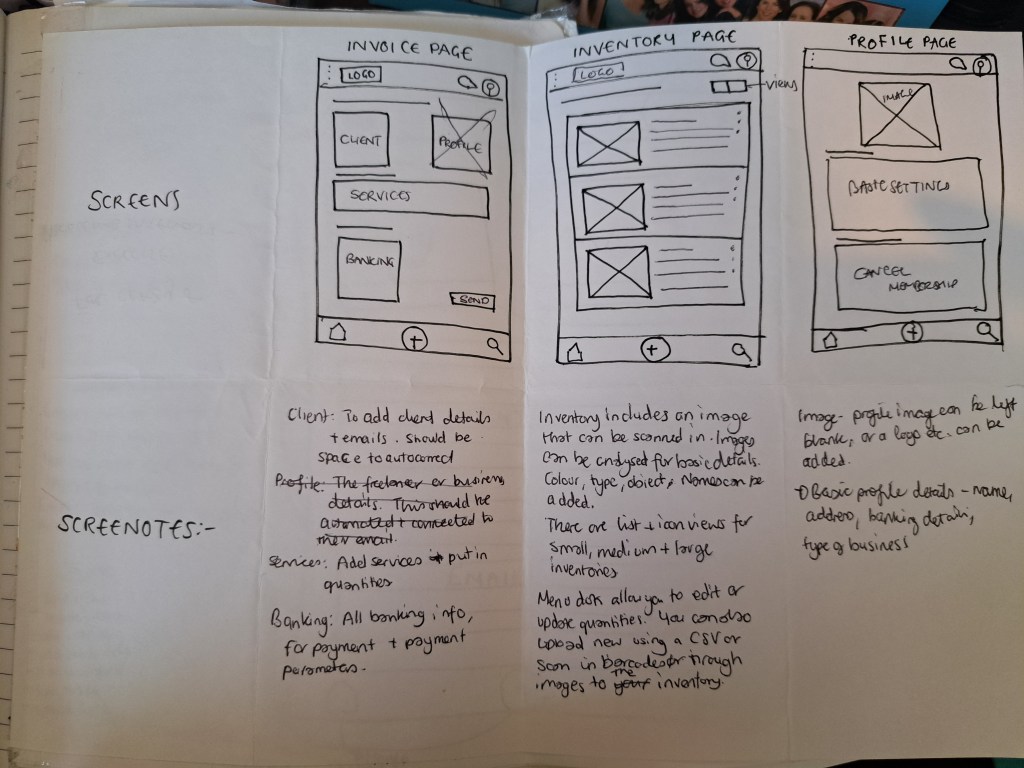 INVOICE PAGE
LOGO
CLIENT
PROFILE
SERVICES
BANKING
SEND
INVENTORY PAGE
LOGO
views
PROFILE PAGE
IMAGE
BASIC SETTINGS
CANCEL
MEMBERSHIP
SCREENS
SCREENOTES:-
Client: To add client details
+ emails. Should be
space to autocorrect
Profile: The freelancer or business
details. This should be
automated + connected to
their email.
Services: Add services put in
quantities
Banking: All banking info,
for payment + payment
parameters.
Inventory includes an image
that can be scanned in. Images
can be analysed for basic details.
Colour, type, object, Names can be
added.
There are list + icon views for
small, medium + large
inventories
Menu dots allow you to edit or
update quantities. You can also
upload new using a CSV or
scan in barcodes or through
images to the your inventory.
Image - profile image can be left
blank, or a logo etc. can be
added.
Basic profile details - name,
address, banking details,
type of business